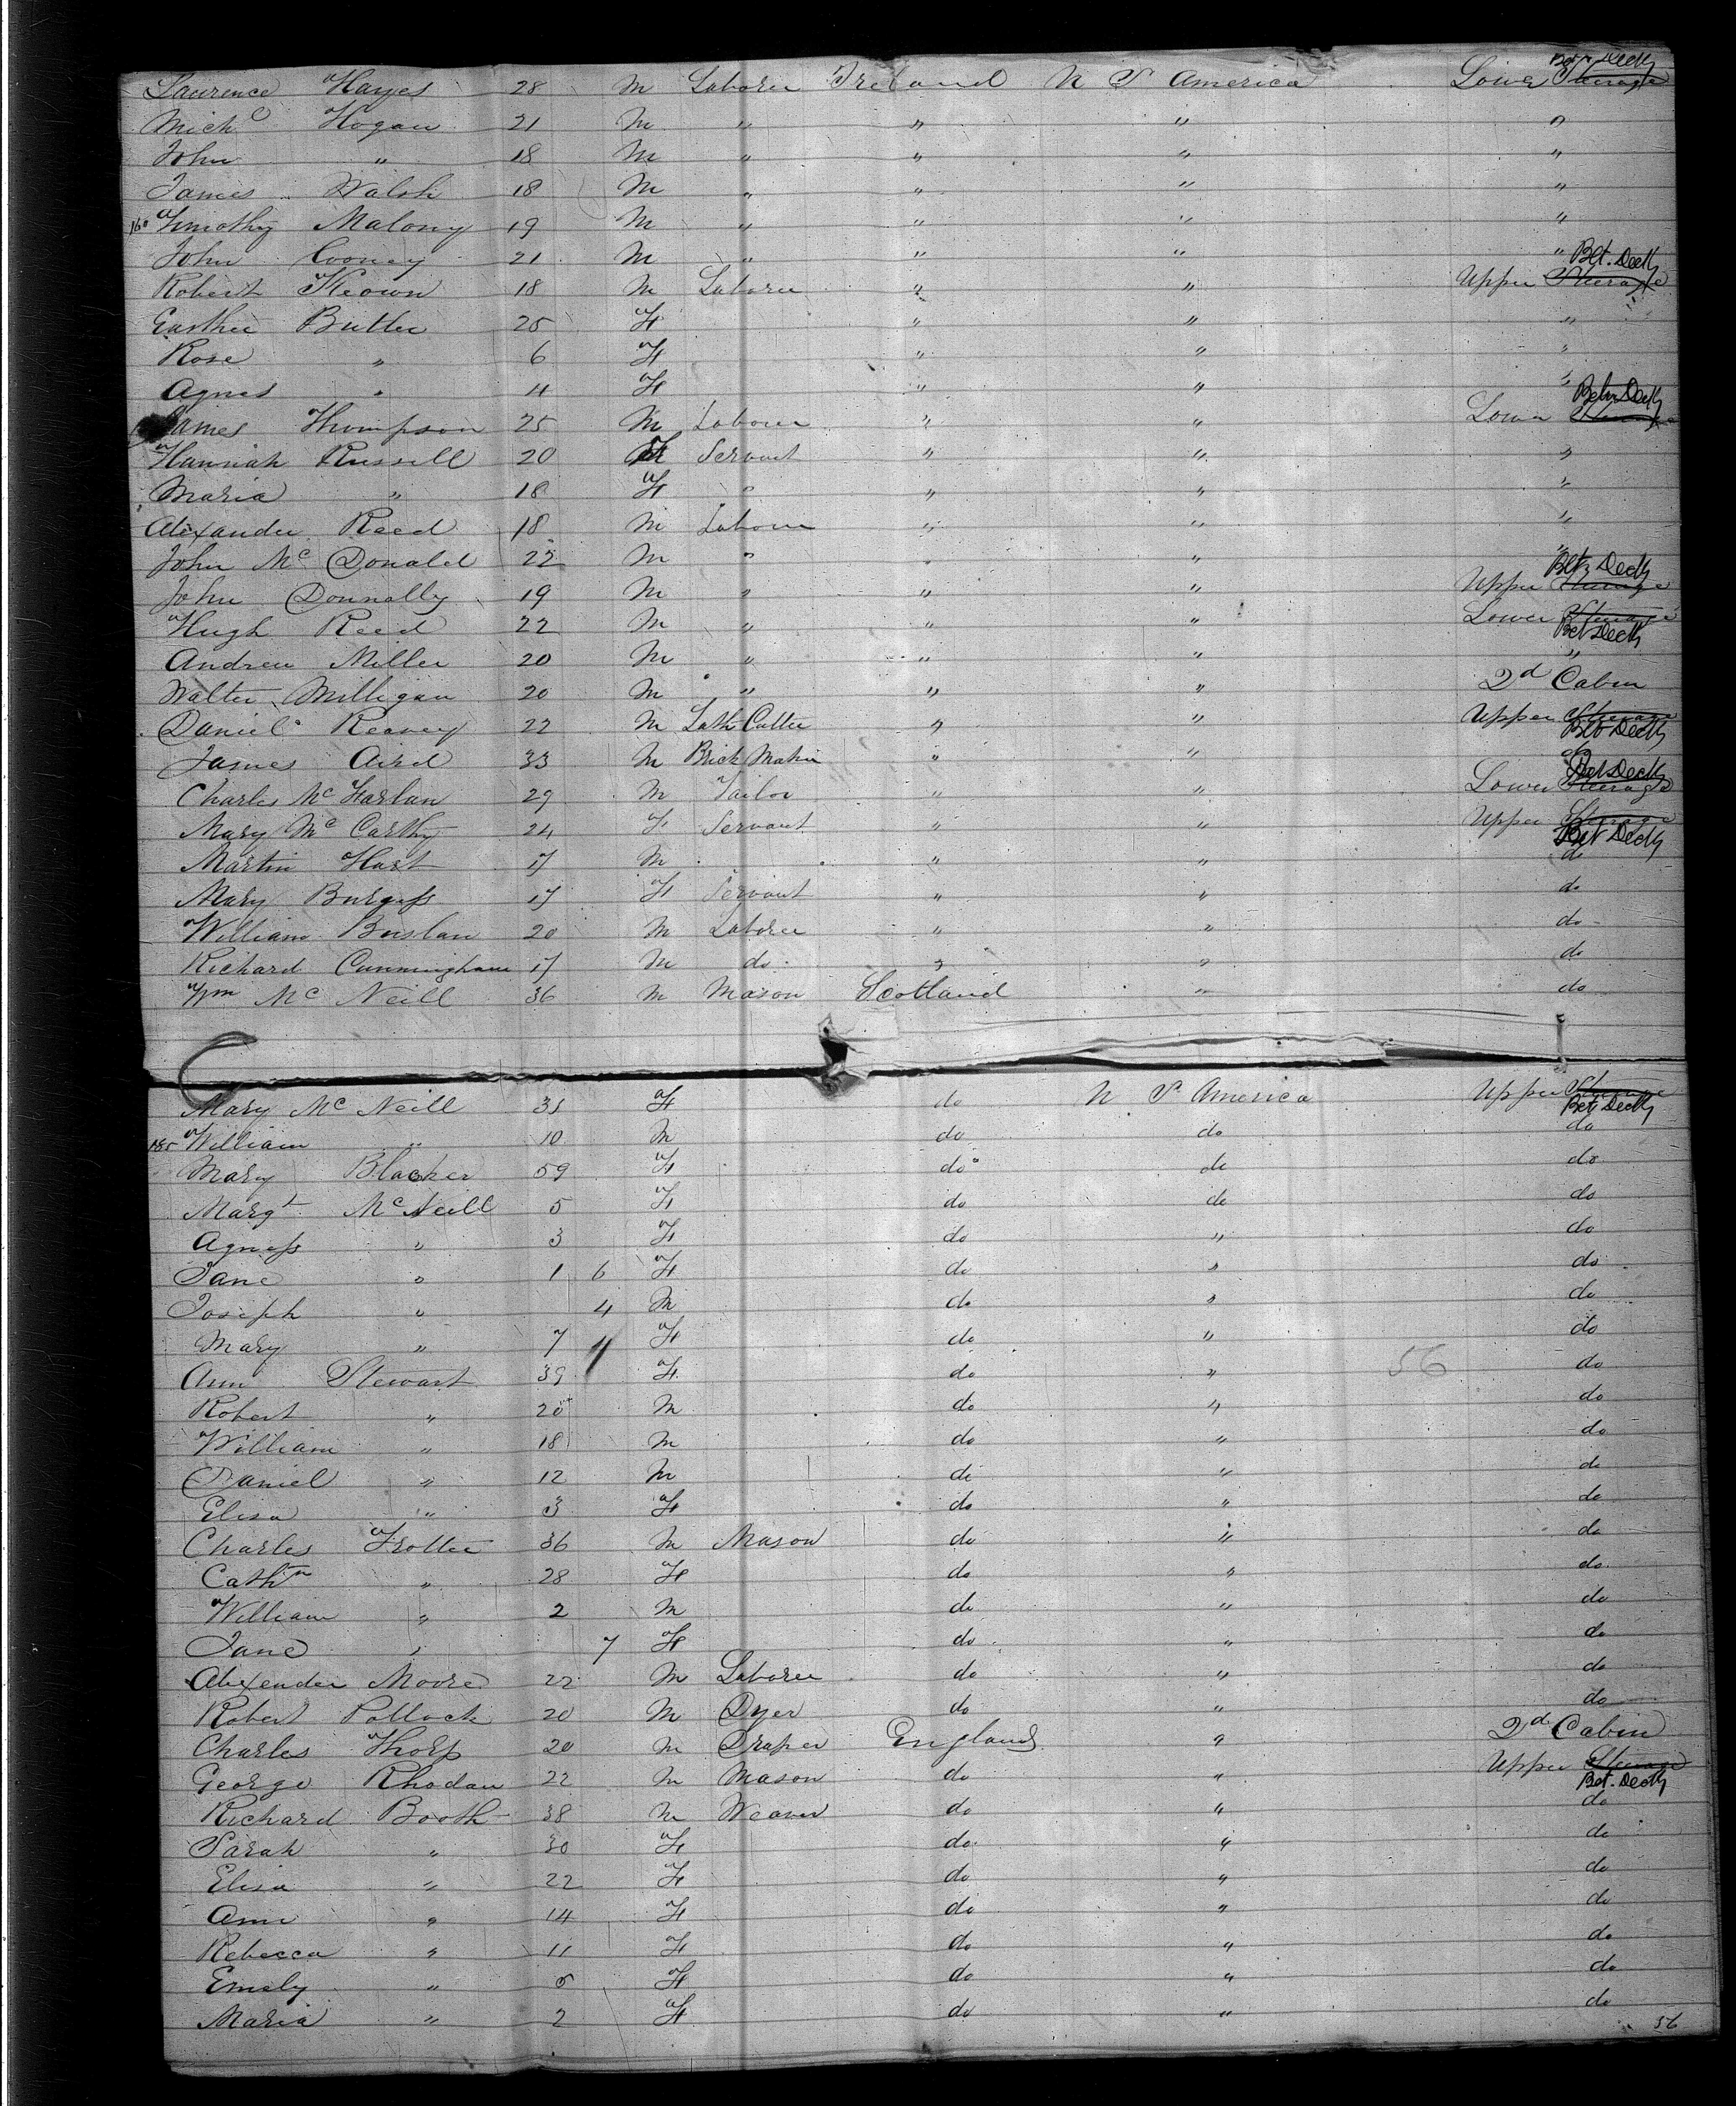 Laurence Hayes 28 M Laborer Ireland U S America Lower Steerage Betw Deck
Mich l Hogan 21 M " " " "
John " 18 M " " " "
James Walsh 18 M " " " "
160 Timothy Malony 19 M " " " "
John Cooney 21 M " " " "
Robert Keown 18 M Laborer " " Upper Steerage Bet. Deck
Easther Butler 25 F " " "
Rose " 6 F " " "
Agnes " 4 F " " "
James Thompson 25 M Laborer " " Lower Steerage Betw Deck
Hannah Russell 20 F Servant " " "
Maria " 18 F " " " "
Alexander Reed 18 M Laborer " " "
John Mc Donald 22 M " " " "
John Donnally 19 M " " " Upper Steerage Bet Deck
Hugh Reed 22 M " " " Lower Steerage Bet Deck
Andrew Miller 20 M " " " "
Walter Milligan 20 M " " " 2d Cabin
Daniel Reavey 22 M Lath Cutter " " Upper Steerage Bet Deck
James Aird 33 M Brick Maker " " do
Charles Mc Farlan 29 M Tailor " " Lower Steerage Bet Deck
Mary Mc Carthy 24 F Servant " " Upper Steerage Bet Deck
Martin Hart 17 M " " do
Mary Burgess 17 F Servant " " do
William Buslan 20 M Laborer " " do
Richard Cunningham 17 M do " " do
Wm Mc Neill 36 M Mason Scotland " do
Mary Mc Neill 31 F do U S America Upper Steerage Bet Deck
185 William " 10 M do do do
Mary Blacker 59 F do do do
Margt McNeill 5 F do do do
Agness " 3 F do " do
Jane " 1 6 F do " do
Joseph " 4 M do " do
Mary " 7 F do " do
Ann Stewart 39 F do " 56 do
Robert " 20 M do " do
William " 18 M do " do
Daniel " 12 M do " do
Elisa " 3 F do " do
Charles Trotter 36 M Mason do " do
Cathn " 28 F do " do
William " 2 M do " do
Jane " 7 F do " do
Alexender Moore 22 M Laborer do " do
Robert Pollock 20 M Dyer do " do
Charles Thorp 20 M Draper England " 2d Cabin
George Rhodan 22 M Mason do " Upper Steerage Bet. Deck
Richard Booth 38 M Weaver do " do
Sarah " 30 F do " do
Elisa " 22 F do " do
Ann " 14 F do " do
Rebecca " 11 F do " do
Emely " 5 F do " do
Maria " 2 F do " do
56